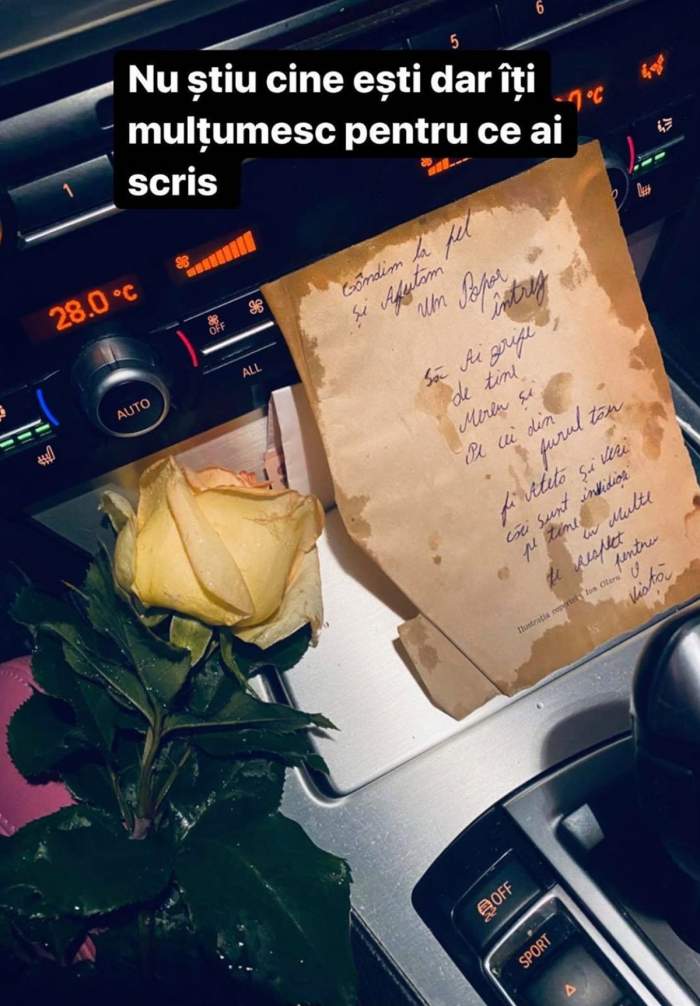 6
5
Nu știu cine ești dar îți
mulțumesc pentru ce ai
scris
1
28.0 °C
OFF
ALL
AUTO
Gândim la fel
și Ajutăm
Un Popor
întreg
Să Ai grije
de tine
Mereu și
Pe cei din
jurul tău
fi Atetă și vezi
căci sunt invidioși
pe tine cu Multe
te respect pentru
Viață
Ilustrația copertei: Ion Olaru
OFF
SPORT